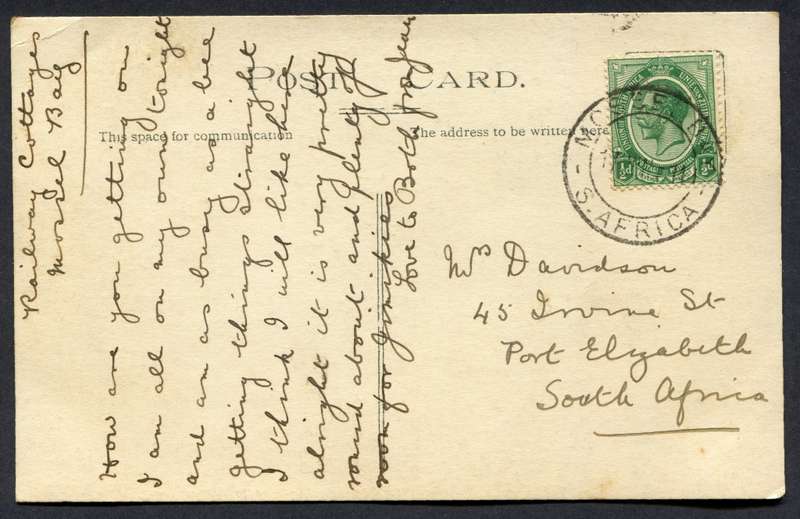 Railway Cottages
Mossel Bay
How are you getting on
I am all on my own tonight
and am as busy as a bee
getting things straight
I think I will like here
alright it is very pretty
round about and plenty of
room for
Love to Both from Jean
POST CARD.
This space for communication
The address to be written here
UNION OF SOUTH AFRICA
½d ½d
MOSSEL BAY
S. AFRICA
Mrs Davidson
45 Irvine St
Port Elizabeth
South Africa